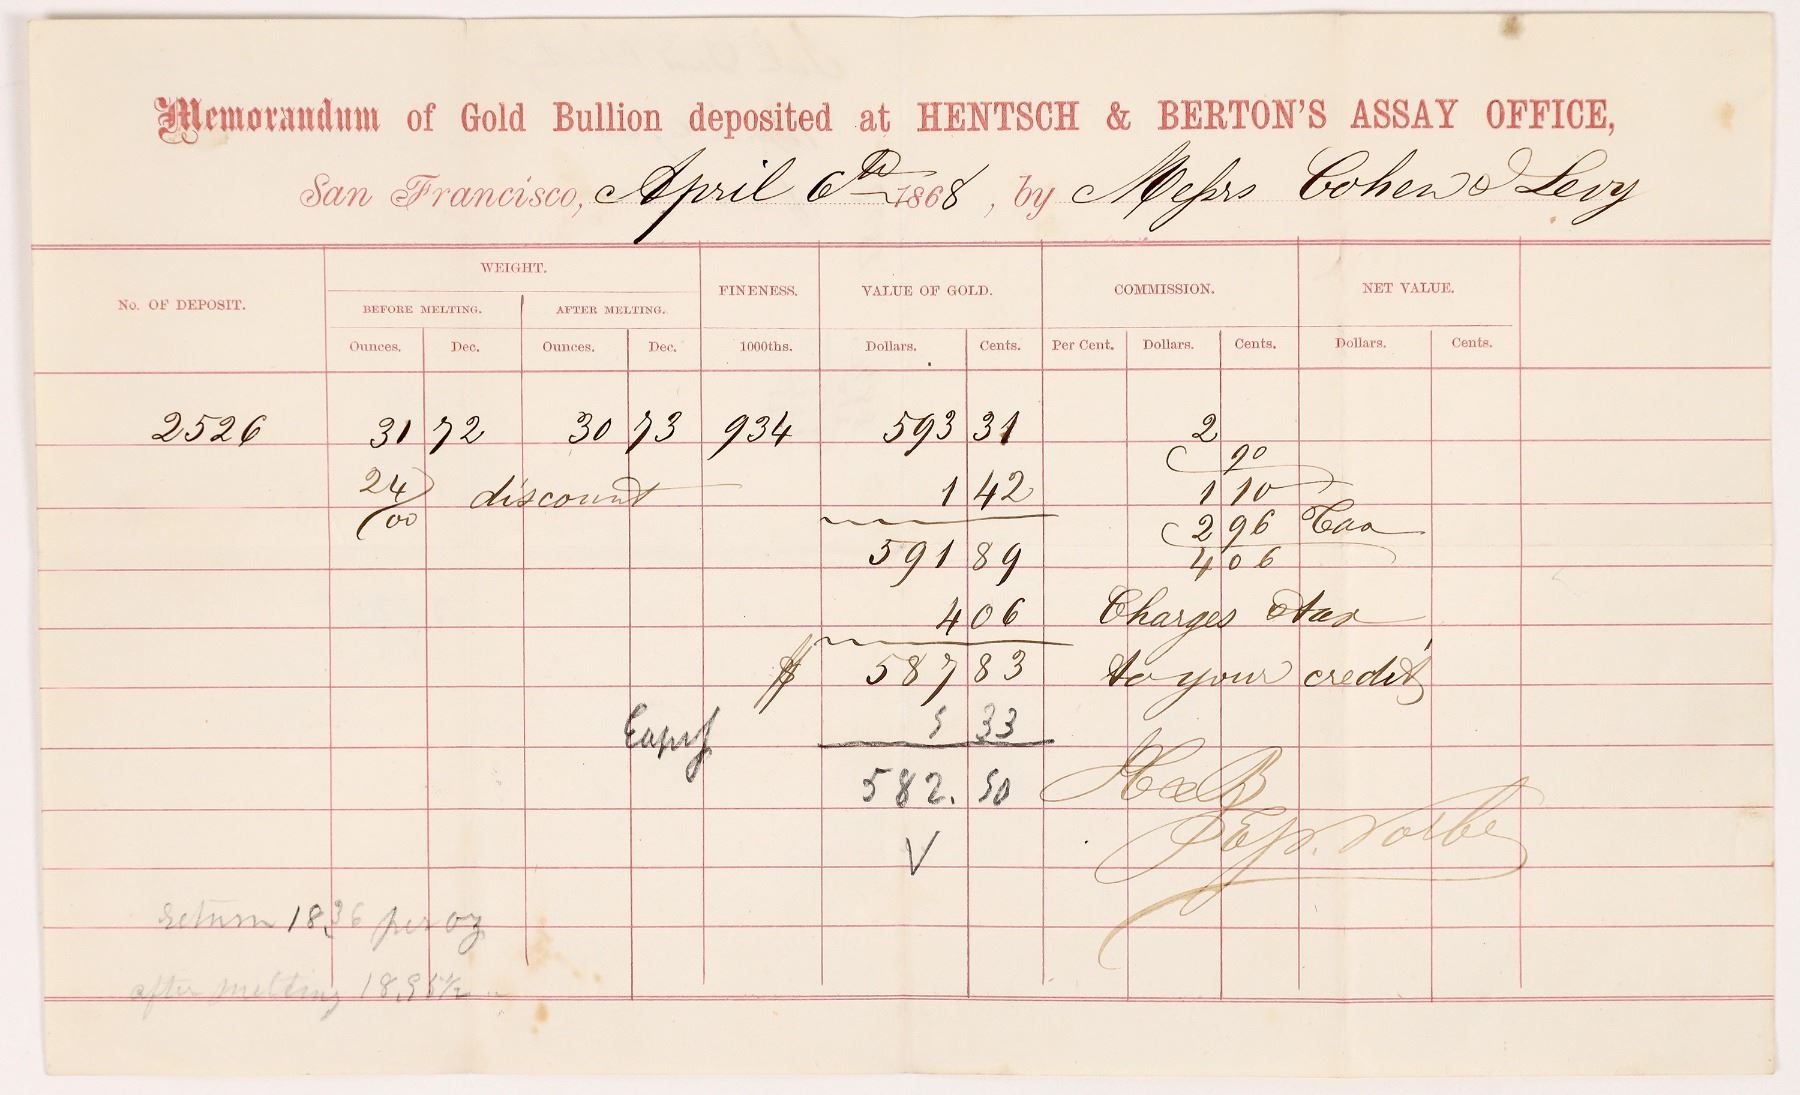 Memorandum of Gold Bullion deposited at HENTSCH & BERTON'S ASSAY OFFICE,
San Francisco, April 6th 1868, by Messrs Cohen & Levy
No. OF DEPOSIT. WEIGHT. FINENESS. VALUE OF GOLD. COMMISSION. NET VALUE.
BEFORE MELTING. AFTER MELTING.
Ounces. Dec. Ounces. Dec. 1000ths. Dollars. Cents. Per Cent. Dollars. Cents. Dollars. Cents.
2526 31 72 30 73 934 593 31 2
90
24/00 discount 1 42 1 10
2 96 Tax
591 89 4 06
4 06 Charges & tax
$ 587 83 to your credit
5 33
582. 50 H & B
V
return 18.36 per oz
after melting 18.95½